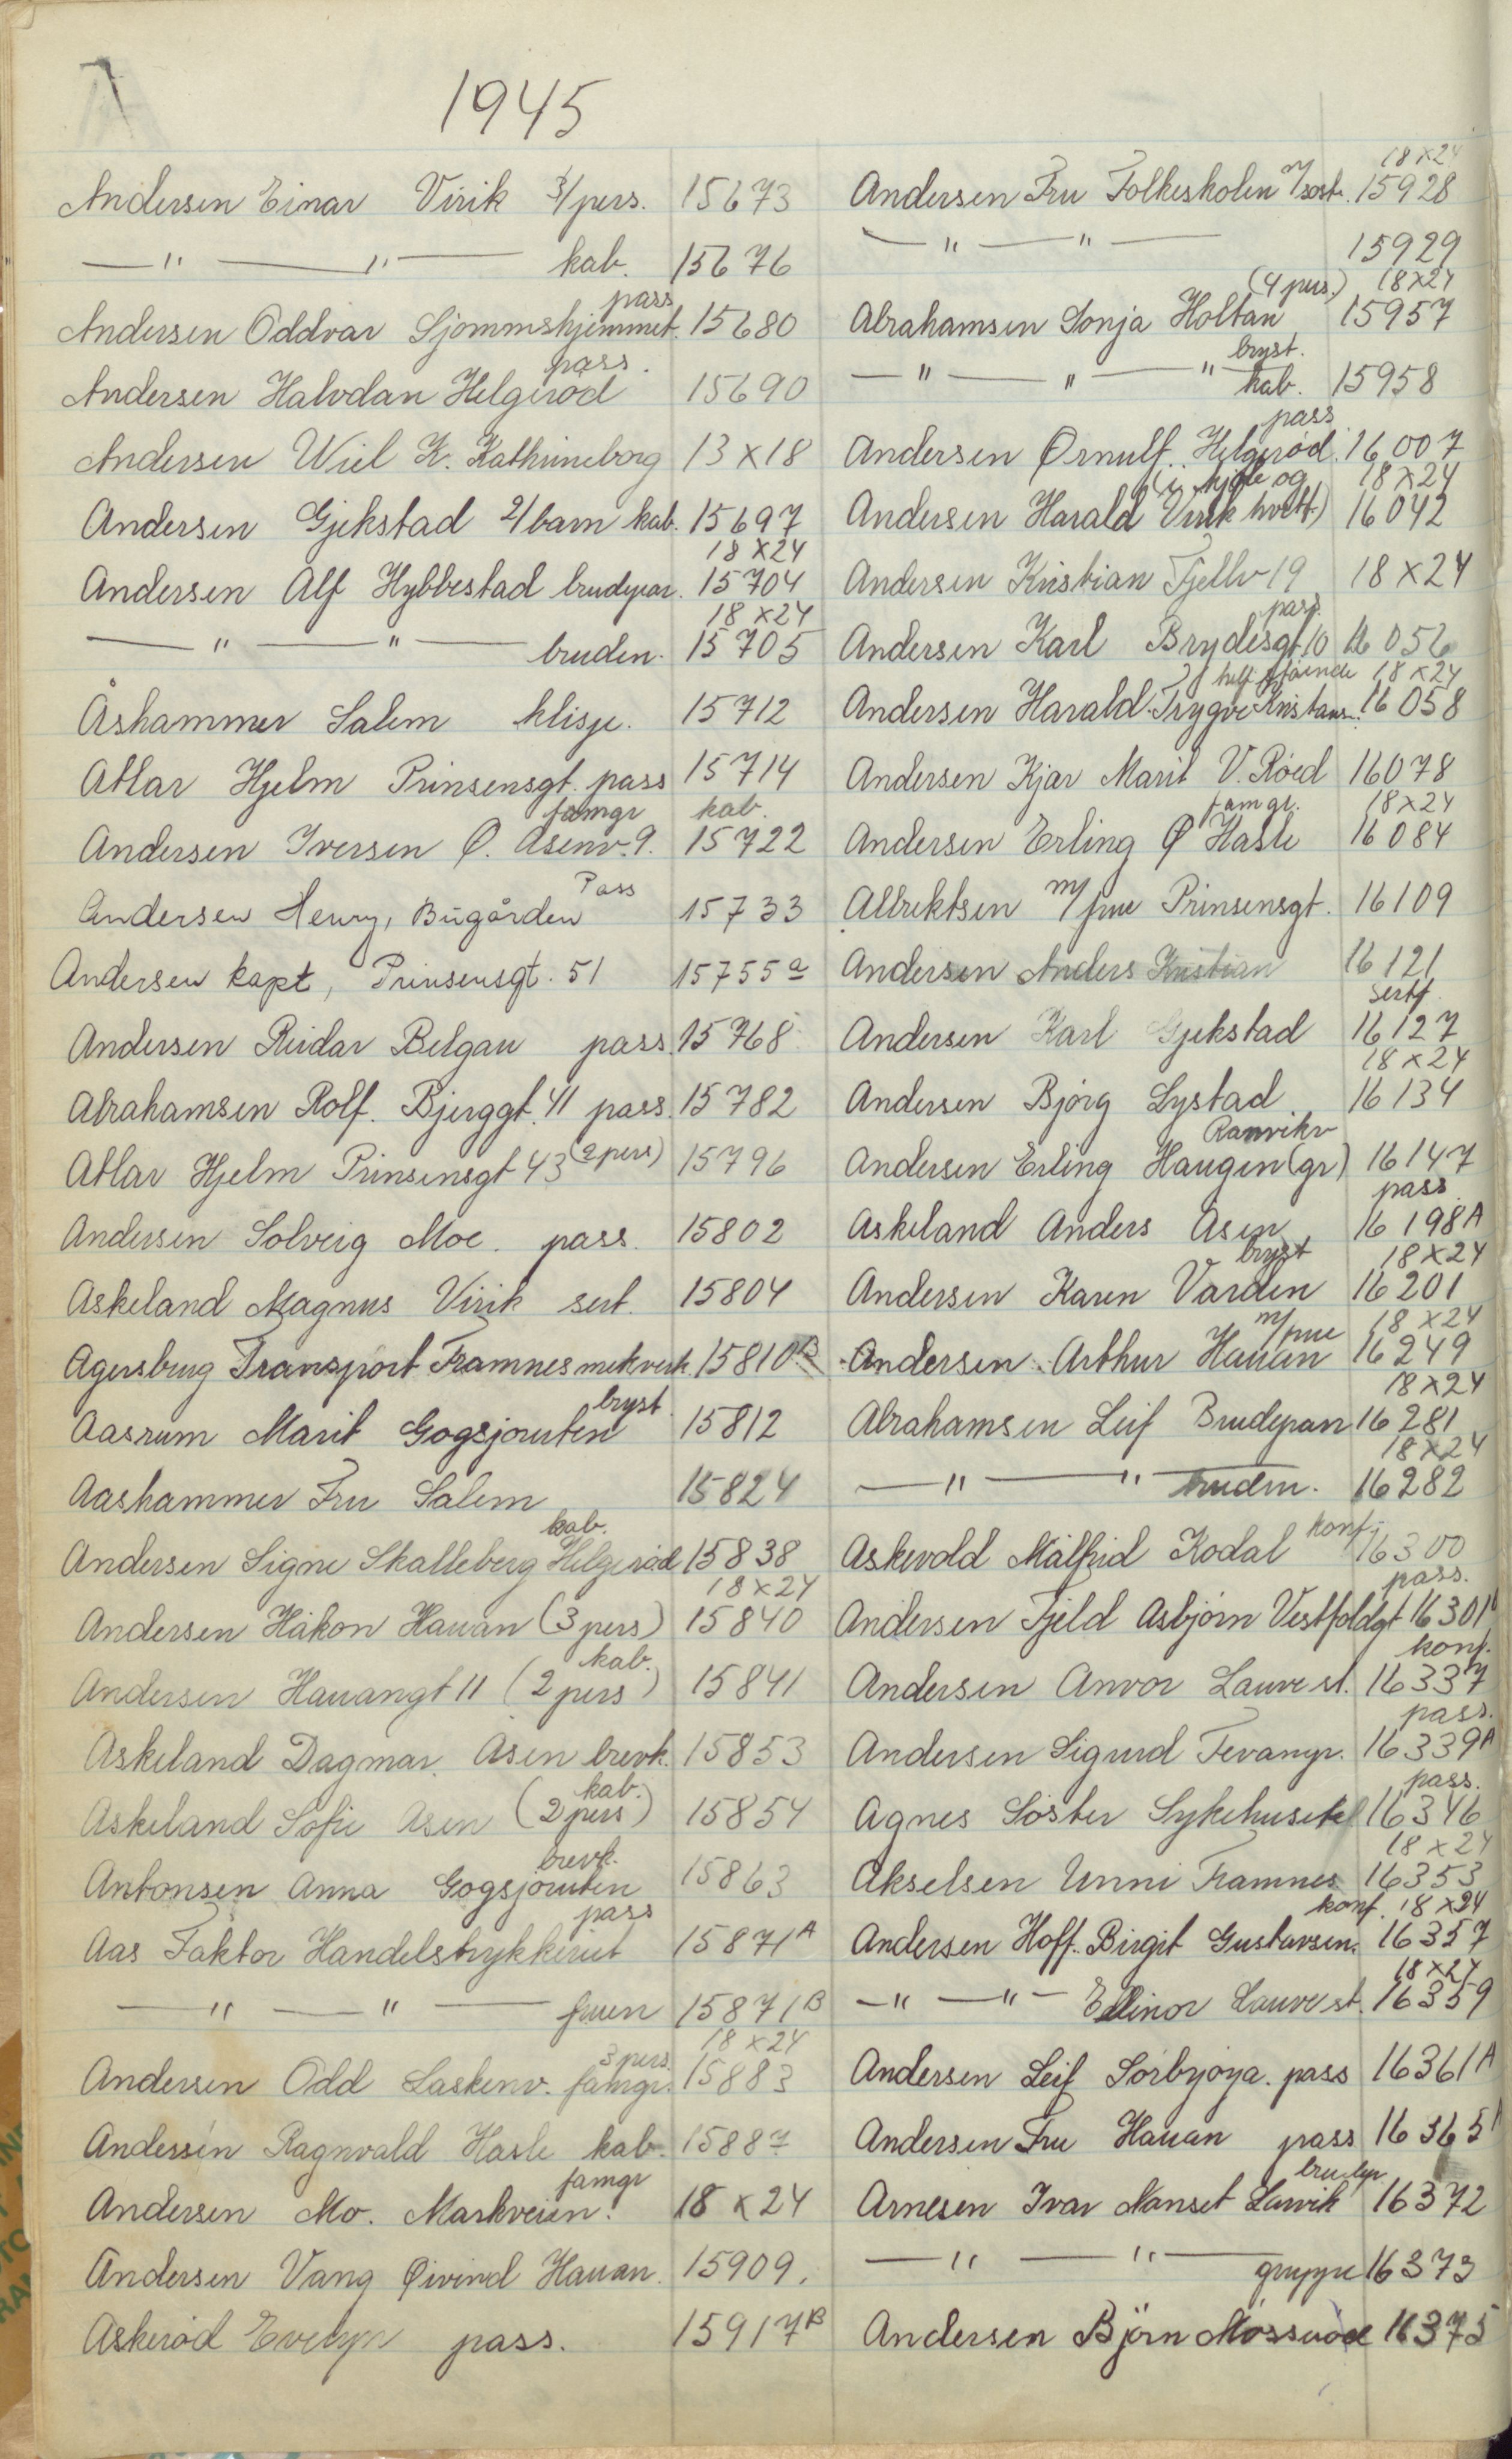 A
1945
Andersen Einar Virik 3/pers. 15673
— " — " — kab. 15676
pass
Andersen Oddvar Sjømmshjemmet. 15680
pass.
Andersen Halvdan Helgerød 15690
Andersen Wiel K. Kathrineborg 13 x 18
Andersen Gjekstad 2/barn kab. 15697
18 x 24
Andersen Alf Hybbestad brudepar. 15704
18 x 24
— " — " — bruden. 15705
Åshammer Salem klisje. 15712
Atlar Hjelm Prinsensgt. pass 15714
famgr kab.
Andersen Iversen Ø. Åsenv. 9. 15722
Pass
Andersen Henry, Bugården 15733
Andersen kapt, Prinsensgt. 51 15755 a
Andersen Reidar Belgau pass. 15768
Abrahamsen Rolf. Bjerggt. 41 pass. 15782
Atlar Hjelm Prinsensgt 43 (2 pers) 15796
Andersen Solveig Moe. pass. 15802
Askeland Magnus Virik sert. 15804
Agersborg Transport Framnes mekverk. 15810 B
bryst.
Aasrum Marit Gogsjøruten 15812
Aashammer Fru Salem 15824
kab.
Andersen Signe Skalleberg Helgerød 15838
18 x 24
Andersen Håkon Hauan (3 pers) 15840
kab.
Andersen Hauangt 11 (2 pers) 15841
Askeland Dagmar. Åsen brevk. 15853
kab.
Askeland Sofie Åsen (2 pers) 15854
brevk.
Antonsen Anna Gogsjøruten 15863
pass
Aas Faktor Handelstrykkeriet 15871 A
— " — " — fruen 15871 B
3 pers. 18 x 24
Andersen Odd Laskenv. famgr. 15883
Andersen Ragnvald Hasle kab. 15887
famgr
Andersen Mo. Markveien. 18 x 24
Andersen Vang Øivind Hauan. 15909.
Askerød Evelyn pass. 15917 B
18 x 24
Andersen Fru Folkeskolen m/sort. 15928
— " — " — 15929
(4 pers.) 18 x 24
Abrahamsen Sonja Holtan 15957
bryst.
— " — " — " kab. 15958
pass
Andersen Ørnulf. Helgerød. 16007
(i kjole og 18 x 24
Andersen Harald Virik hvitt) 16042
Andersen Kristian Fjellv 19 18 x 24
pass
Andersen Karl Brydesgt 10 16056
helf. stående 18 x 24
Andersen Harald Trygve Kristians. 16058
Andersen Kjær Marit V. Røed 16078
famgr. 18 x 24
Andersen Erling Ø Hasle 16084
Albrektsen m/frue Prinsensgt. 16109
Andersen Anders Kristian 16121
sertf.
Andersen Karl Gjekstad 16127
18 x 24
Andersen Bjørg Lystad. 16134
Ranvikv
Andersen Erling Haugen (gr) 16147
pass.
Askeland Anders Åsen 16198 A
bryst 18 x 24
Andersen Karen Varden 16201
m/frue 18 x 24
Andersen Arthur Hauan 16249
18 x 24
Abrahamsen Leif Brudepar 16281
18 x 24
— " — " — bruden. 16282
konf.
Askevold Målfrid Kodal 16300
pass.
Andersen Fjeld Asbjørn Vestfoldgt 16301
konf.
Andersen Anvor Lauve st. 16337
pass.
Andersen Sigurd Tevangr. 16339 A
pass.
Agnes Søster Sykehuset 16346
18 x 24
Akselsen Unni Framnes 16353
konf. 18 x 24
Andersen Hoff. Birgit Gustavsen. 16357
18 x 24
— " — " — Ellinor Lauve st. 16359
Andersen Leif Sørbyøya. pass 16361 A
Andersen Fru Hauan pass 16365
brudep
Arnesen Ivar Nanset Larvik 16372
— " — " — gruppe 16373
Andersen Bjørn Mosserød 16375